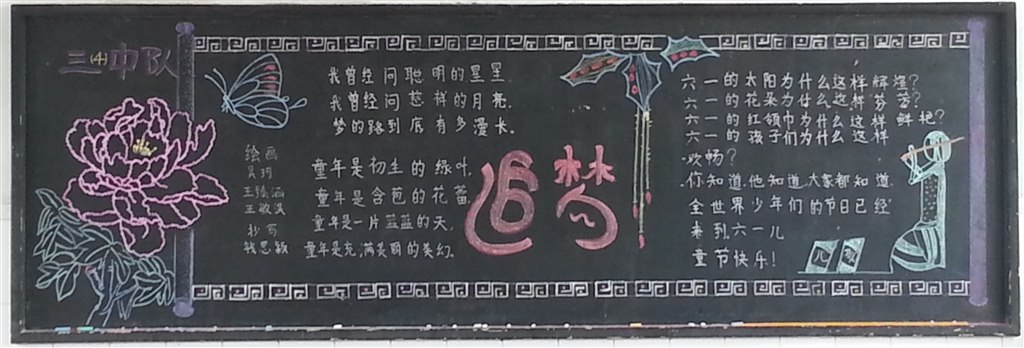 三(4)中队
我曾经问聪明的星星
我曾经问慈祥的月亮.
梦的路到底有多漫长.
绘画
吴珂
王臻涵
王敏溪
抄写
钱思颖
童年是初生的绿叶,
童年是含苞的花蕾
童年是一片蓝蓝的天,
童年是充满美丽的美幻.
追梦
六一的太阳为什么这样辉煌?
六一的花朵为什么这样芬芳?
六一的红领巾为什么这样鲜艳?
六一的孩子们为什么这样
欢畅?
你知道,他知道,大家都知道.
全世界少年们的节日已经
来到六一儿
童节快乐!
儿歌